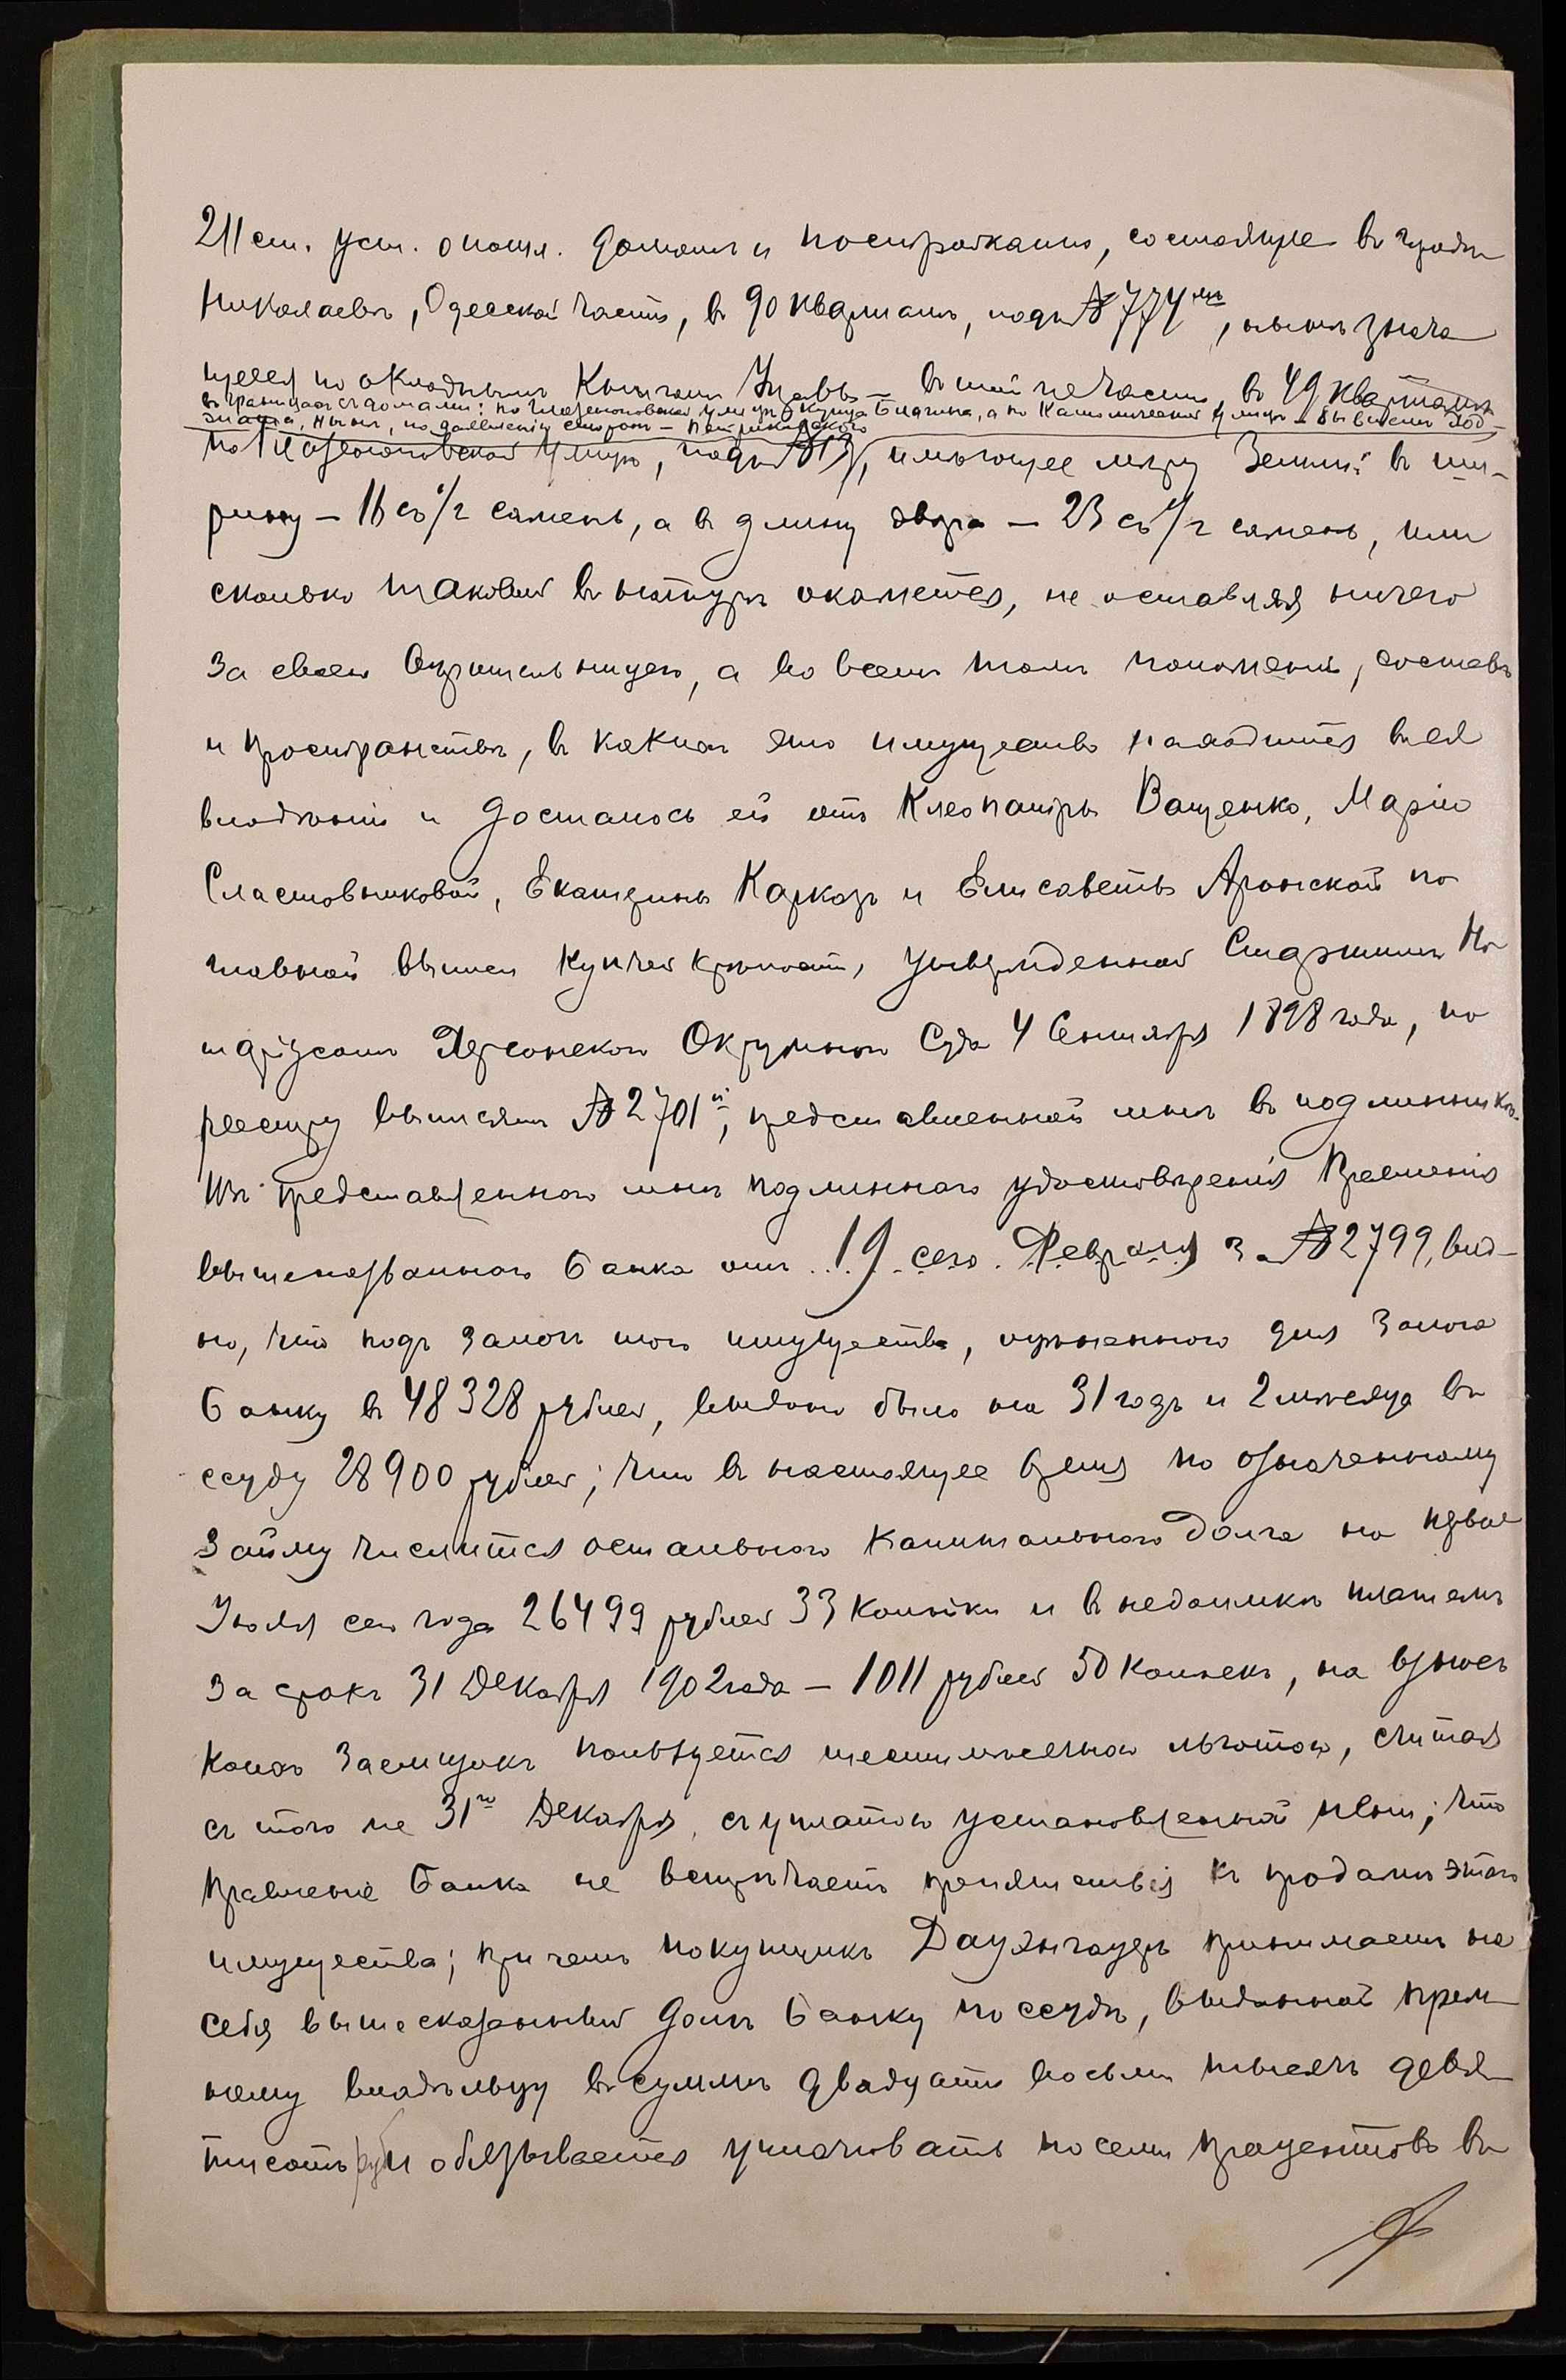 211 ст. уст. о пошл. домомъ и постройками, состоящее въ городѣ
Николаевѣ, Одесской части, въ 90 кварталѣ, подъ № 774мъ, нынѣ знача
щееся по окладнымъ книгамъ Управы — въ той же части, въ 49 кварталѣ
въ границахъ съ домами: по Глазенаповской улицѣ купца Бидгина, а по Католической улицѣ — бывшимъ
нынѣ, по заявленію сторонъ —
по Глазенаповской улицѣ, подъ № 13, имѣющее мѣру земли: въ ши-
рину — 16 съ 1/2 сажень, а въ длину двора — 23 съ 1/2 сажень, или
сколько таковой въ натурѣ окажется, не оставляя ничего
за своею вѣрительницею, а во всемъ томъ положеніи, составѣ
и пространствѣ, въ какихъ это имущество находится въ ея
владѣніи и досталось ей отъ Клеопатры Ващенко, Маріи
Сластовниковой, Екатерины Каркозъ и Елисаветы Аронской по
главной выписи купчей крѣпости, утвержденной Старшимъ Но
таріусомъ Херсонскаго Окружного Суда 4 Сентября 1898 года, по
реестру выписямъ № 2701й, представленной мнѣ въ подлинникѣ.
Изъ представленнаго мнѣ подлиннаго удостовѣренія Правленія
вышеназваннаго банка отъ 19 сего Февраля за № 2799, вид-
но, что подъ залогъ того имущества, оцѣненнаго для залога
банку въ 48328 рублей, выдано было на 31 годъ и 2 мѣсяца въ
ссуду 28900 рублей; что въ настоящее время по означенному
займу числится остальнаго капитальнаго долга на первое
Іюля сего года 26499 рублей 33 копѣйки и въ недоимкѣ платежъ
за срокъ 31 Декабря 1902 года — 1011 рублей 50 копѣекъ, на взносъ
коихъ заемщикъ пользуется шестимѣсячною льготою, считая
съ того же 31го Декабря, съ уплатою установленной пени; что
Правленіе банка не встрѣчаетъ препятствія къ продажѣ этого
имущества; при чемъ покупщикъ Даузнгауеръ принимаетъ на
себя вышесказанный долгъ банку по ссудѣ, выданной преж
нему владѣльцу въ суммѣ двадцати восьми тысячъ девя
тисотъ руб и обязывается уплачивать по семи процентовъ въ